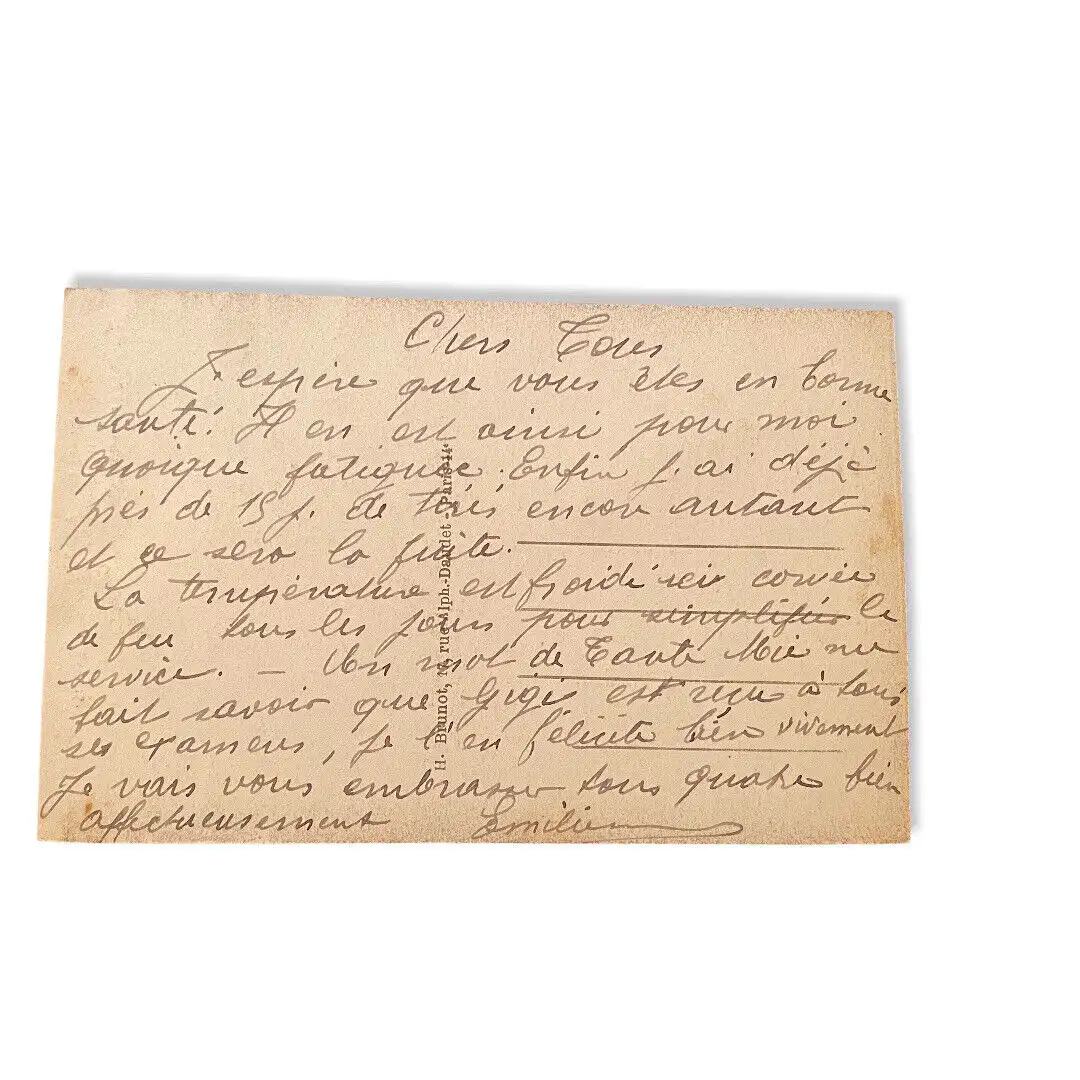 Chers Tous
J'espère que vous êtes en bonne
santé. Il en est ainsi pour moi
quoique fatiguée. Enfin j'ai déjà
près de 15 j. de tirés encore autant
et ce sera la fuite.
La température est froide ici corvée
de feu tous les jours pour simplifier le
service. – Un mot de Tante Mie me
fait savoir que Gigi est reçu à tous
ses examens, je l'en félicite bien vivement
Je vais vous embrasser tous quatre bien
affectueusement Emilie
H. Brunot, rue Alph.-Daudet - Paris-14e